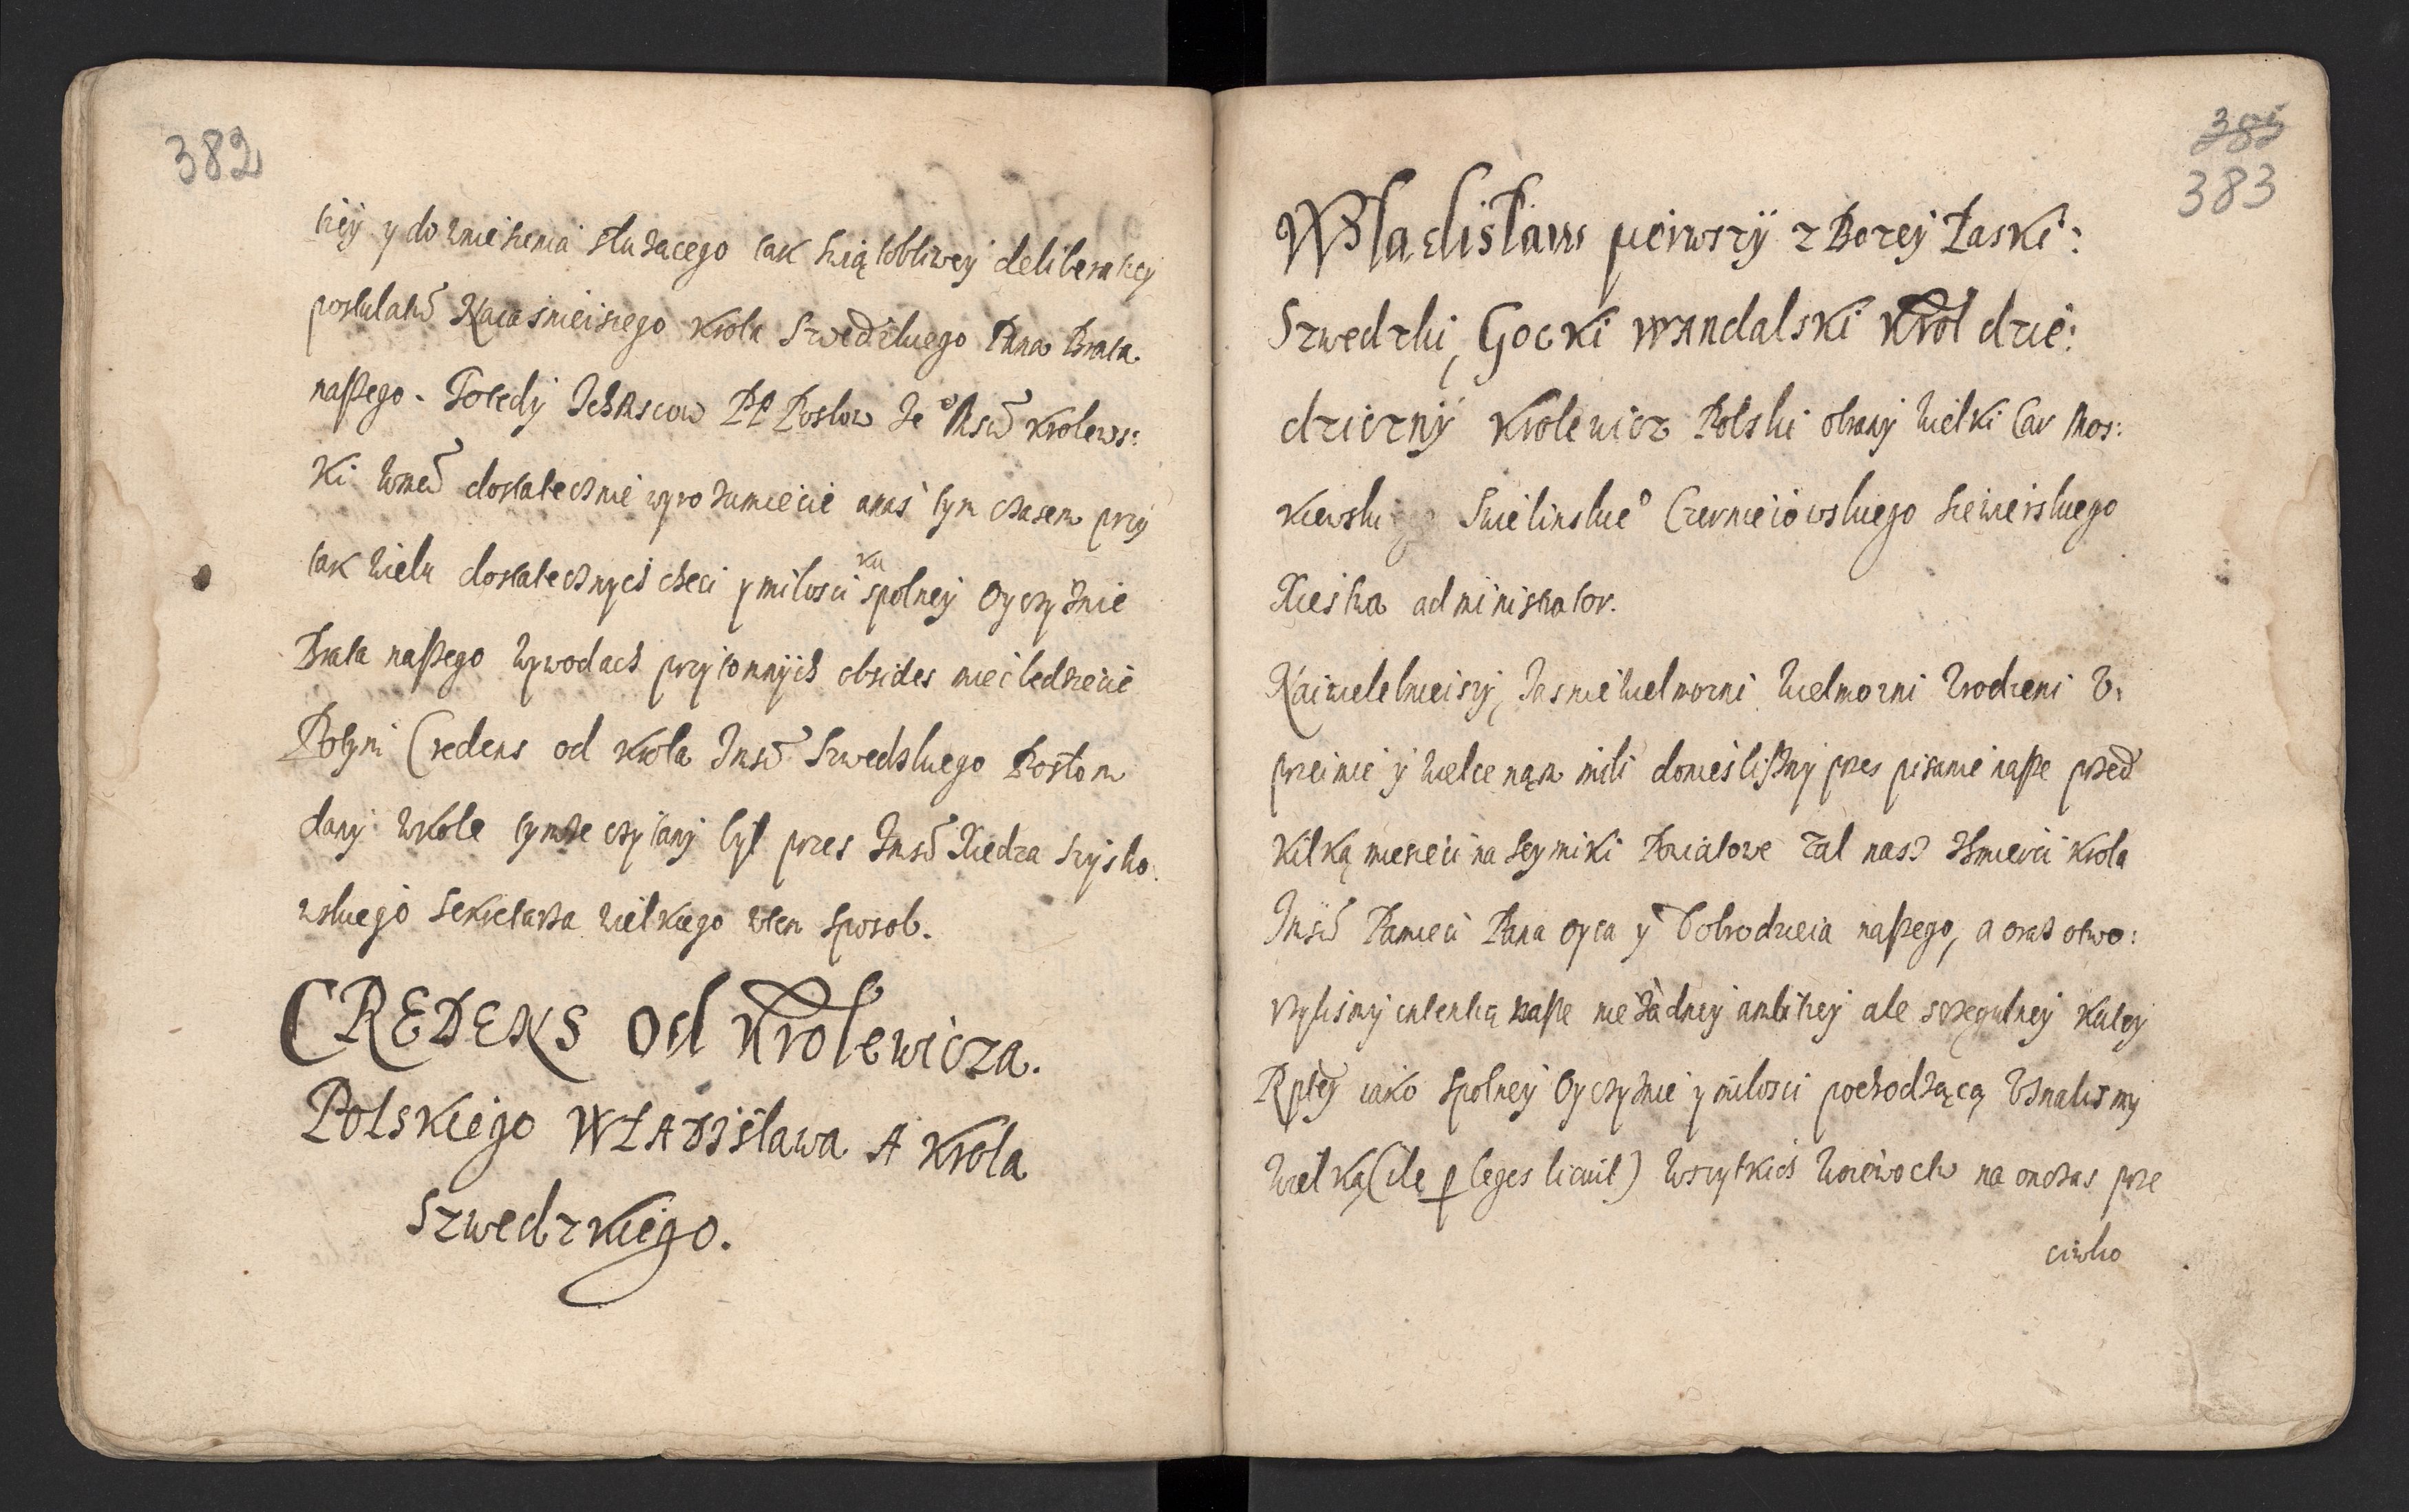 382
kiey y do zniesienia słuzacego tak swiątobliwey deliberatiey
postulatu Naiasnieiszego Krola Szwedzkiego Pana Brata
naszego. Potedy Ichmscow PP Posłow Je° Kmsci Krolews:
Ki dostatecznie wyrozumiecie a nas tym czasem przy
tak wielu dostatecznych checi y milosci ku spolney Oyczyznie
Brata naszego wywodach przytomnych obsides miec bedziecie
Potym Credens od Krola Jmsci Szwedzkiego Posłom
dany w Kole tymze czytany był przes Jmsci Xiedza Szysko
wskiego Sekretarza wielkiego w ten sposob.
CREDENS od Krolewicza.
Polskiego WŁADisława A Krola
Szwedzkiego.
385
383
Wladisław pierwszy z Bozey Łaski:
Szwedzki, Gocki Wandalski Krol dzie:
dziczny Krolewicz Polski obrany wielki Car Mos:
kiewski Smolinskie° Czernieiowskiego Siewierskiego
Xiestwa administrator.
Naiwielebnieiszy, Jasnie wielmozni wielmozni Vrodzeni V:
przeimie y wielce nąm mili doniesliszmy przes pisanie nasze przed
kilką miesieci na Seymiki Powiatowe zal nasz z smierci Krola
Jmsci Pamieci Pana oyca y Dobrodzieia naszego, a oraz otwo:
rzylismy intentią nasze nie zadney ambitiey ale szczegulney ku tey
Rptey iako spolney Oyczyznie y milosci pochodzącą Vznalismy
wielką (ile p leges licuit) wszytkich woiewodtw na onczas prze
ciwko